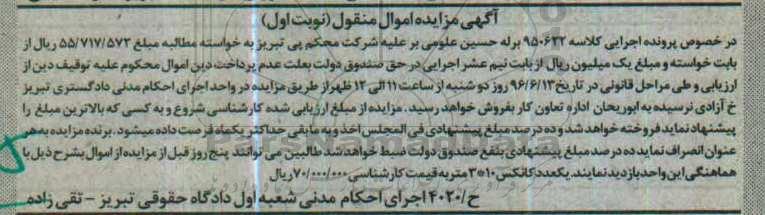 آگهی مزایده اموال منقول (نوبت اول)
در خصوص پرونده اجرایی کلاسه ۹۵۰۶۳۲ برله حسین علومی بر علیه شرکت محکم پی تبریز به خواسته مطالبه مبلغ ۵۵/۷۱۷/۵۷۳ ریال از
بابت خواسته و مبلغ یک میلیون ریال از بابت نیم عشر اجرایی در حق صندوق دولت بعلت عدم پرداخت دین اموال محکوم علیه توقیف دین از
ارزیابی و طی مراحل قانونی در تاریخ ۹۶/۶/۱۳ روز دو شنبه از ساعت ۱۱ الی ۱۲ ظهر از طریق مزایده در واحد اجرای احکام مدنی دادگستری تبریز
خ آزادی نرسیده به ابوریحان اداره تعاون کار بفروش خواهد رسید. مزایده از مبلغ ارزیابی شده کارشناسی شروع و به کسی که بالاترین مبلغ را
پیشنهاد نماید فروخته خواهد شد و ده درصد مبلغ پیشنهادی فی المجلس اخذ و به مابقی حداکثر یکماه فرصت داده میشود. برنده مزایده به هر
عنوان انصراف نماید ده درصد مبلغ پیشنهادی بنفع صندوق دولت ضبط خواهد شد طالبین می توانند پنج روز قبل از مزایده از اموال بشرح ذیل با
هماهنگی این واحد بازدید نمایند. یکعدد کانکس ۱۰*۳ متر به قیمت کارشناسی ۷۰/۰۰۰/۰۰۰ ریال
ح/۴۰۲۰ اجرای احکام مدنی شعبه اول دادگاه حقوقی تبریز - تقی زاده